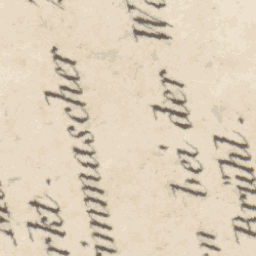 rkt.
immascher
bei der
n Brühl.